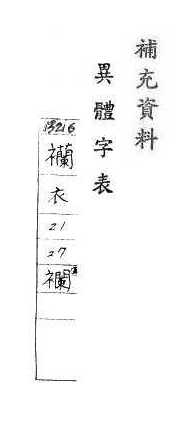 補充資料
異體字表
襽
衣
21
27
襴